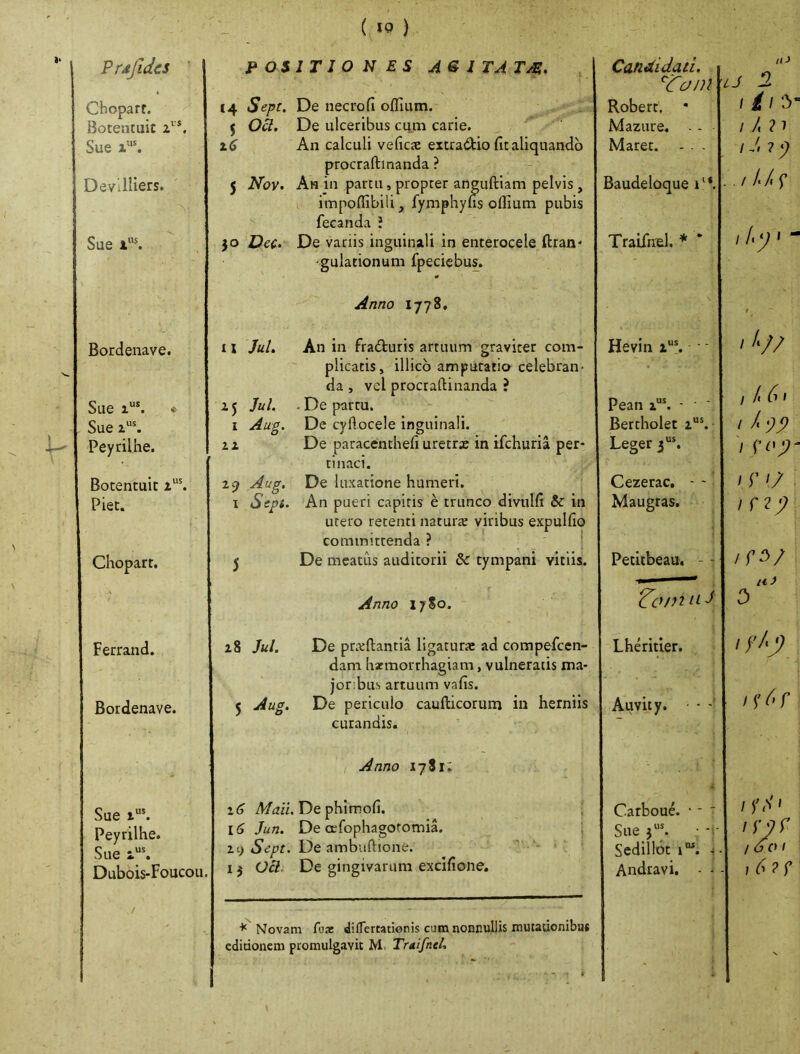 ( 10 )
Præſides POSITIONES AGITATÆ. Candidati.
Tomus 2
Chopart. 14 Sept. De necroſi oſſium. Robert.
Botentuit 2us. 5 Oct. De ulceribus cum carie. Mazure.
Sue 2us. 26 An calculi veſicæ extractio ſit aliquandò Maret.
procraſtinanda ?
Devilliers. 5 Nov. An in partu, propter anguſtiam pelvis, Baudeloque 1us.
impoſſibili, ſymphyſis oſſium pubis
ſecanda ?
Sue 2us. 30 Dec. De variis inguinali in enterocele ſtran-
gulationum ſpeciebus. Traiſnel. *
Anno 1778.
Bordenave. 11 Jul. An in fracturis artuum graviter com- Hevin 2us.
plicatis, illicò amputatio celebran-
da, vel procraſtinanda ?
Sue 2us. 25 Jul. De partu. Pean 2us.
Sue 2us. 1 Aug. De cyſtocele inguinali. Bertholet 2us.
Peyrilhe. 22 De paracentheſi uretræ in iſchuriâ per- Leger 3us.
tinaci.
Botentuit 2us. 29 Aug. De luxatione humeri. Cezerac.
Piet. 1 Sept. An pueri capitis è trunco divulſi & in Maugras.
utero retenti naturæ viribus expulſio
committenda ?
Chopart. 5 De meatûs auditorii & tympani vitiis. Petitbeau.
Anno 1780. Tomus 3
Ferrand. 28 Jul. De præſtantiâ ligaturæ ad compeſcen- Lhéritier.
dam hæmorrhagiam, vulneratis ma-
joribus artuum vaſis.
Bordenave. 5 Aug. De periculo cauſticorum in herniis Auvity.
curandis.
Anno 1781.
Sue 2us. 26 Maii. De phimoſi. Carboué.
Peyrilhe. 16 Jun. De œſophagotomiâ. Sue 3us.
Sue 2us. 29 Sept. De ambuſtione. Sedillot 1us.
Dubois-Foucou. 13 Oct. De gingivarum exciſione. Andravi.
* Novam ſuæ diſſertationis cum nonnullis mutationibus
editionem promulgavit M. Traiſnel.